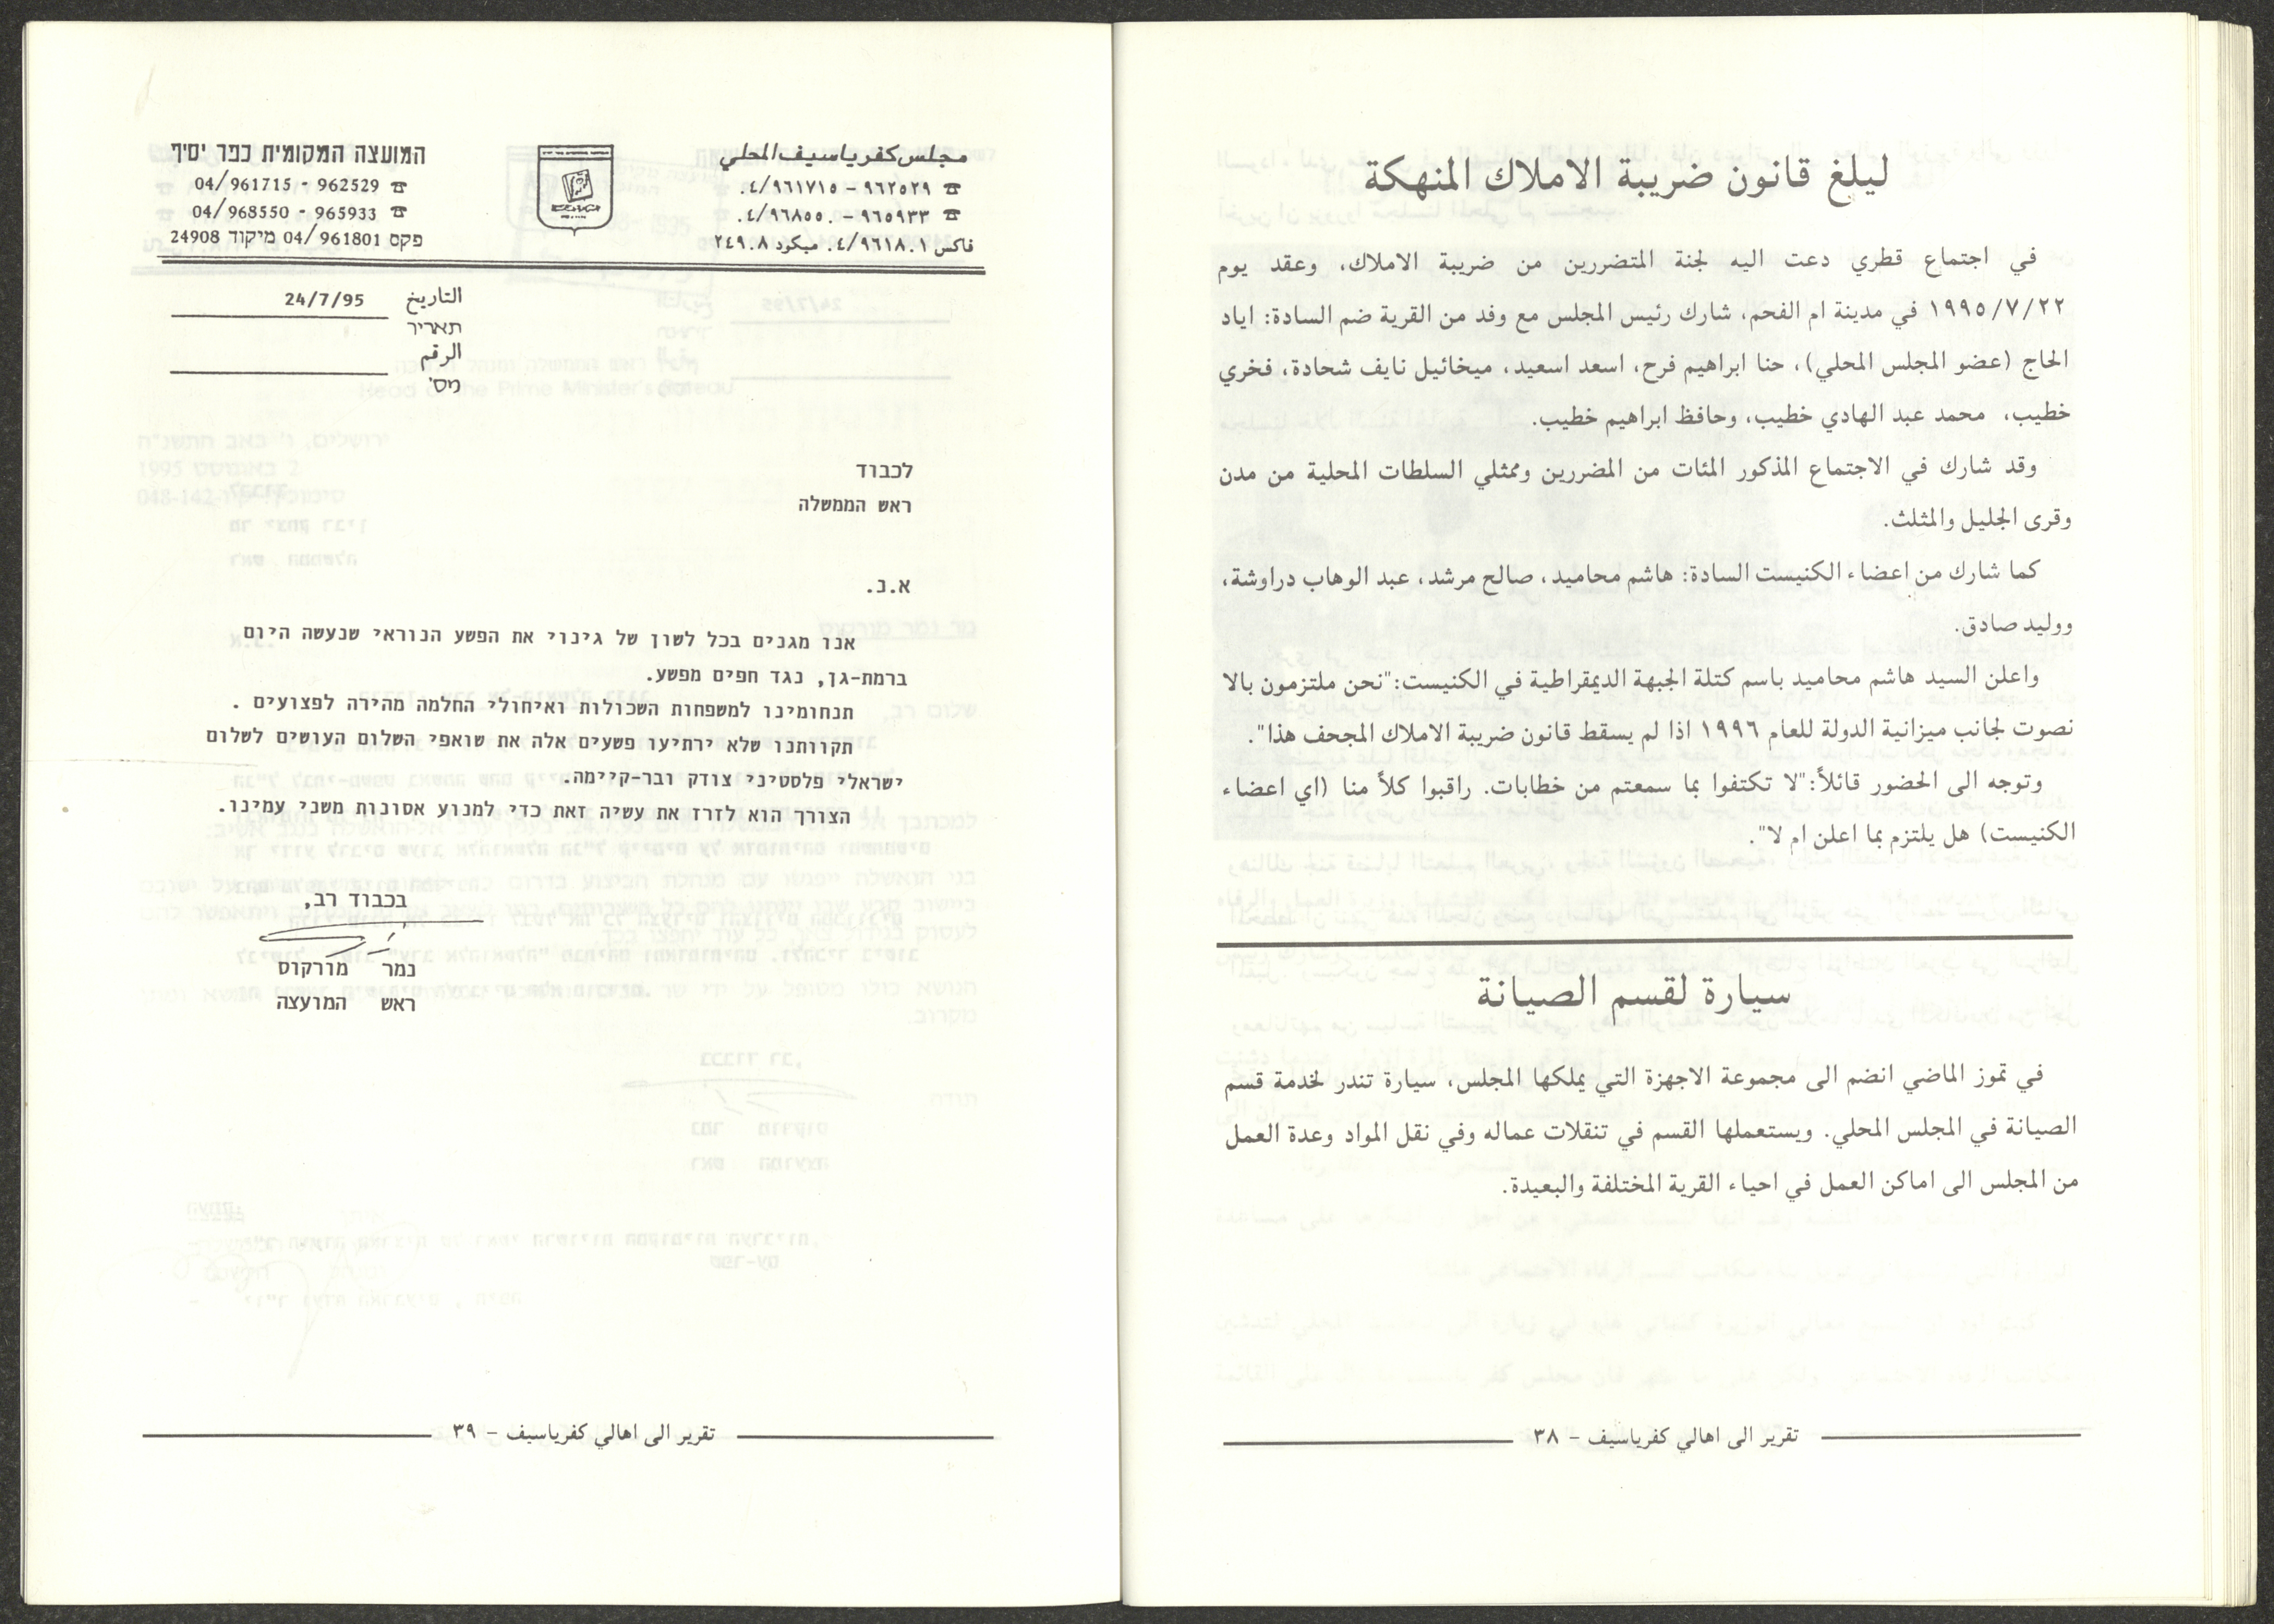 ليلغ قانون ضريبة الاملاك المنهكة
في اجتماع قطري دعت اليه لجنة المتضررين من ضريبة الاملاك، وعقد يوم
١٩٩٥/٧/٢٢ في مدينة ام الفحم، شارك رئيس المجلس مع وفد من القرية ضم السادة: اياد
الحاج (عضو المجلس المحلي)، حنا ابراهيم فرح، اسعد اسعيد، ميخائيل نايف شحادة، فخري
خطيب، محمد عبد الهادي خطيب، وحافظ ابراهيم خطيب.
وقد شارك في الاجتماع المذكور المئات من المضررين وممثلي السلطات المحلية من مدن
وقرى الجليل والمثلث.
كما شارك من اعضاء الكنيست السادة: هاشم محاميد، صالح مرشد، عبد الوهاب دراوشة،
ووليد صادق.
واعلن السيد هاشم محاميد باسم كتلة الجبهة الديمقراطية في الكنيست:"نحن ملتزمون بالا
نصوت لجانب ميزانية الدولة للعام ١٩٩٦ اذا لم يسقط قانون ضريبة الاملاك المجحف هذا".
وتوجه الى الحضور قائلاً:"لا تكتفوا بما سمعتم من خطابات. راقبوا كلاً منا (اي اعضاء
الكنيست) هل يلتزم بما اعلن ام لا".
سيارة لقسم الصيانة
في تموز الماضي انضم الى مجموعة الاجهزة التي يملكها المجلس، سيارة تندر لخدمة قسم
الصيانة في المجلس المحلي. ويستعملها القسم في تنقلات عماله وفي نقل المواد وعدة العمل
من المجلس الى اماكن العمل في احياء القرية المختلفة والبعيدة.
تقرير الى اهالي كفرياسيف - ٣٨
مجلس كفرياسيف المحلي
☎ ٩٦٢٥٢٩ - ٠٤/٩٦١٧١٥
☎ ٩٦٥٩٣٣ - ٠٤/٩٦٨٥٥٠
فاكس ٠٤/٩٦١٨٠١ ميكود ٢٤٩٠٨
המועצה המקומית כפר יסיף
☎ 04/961715 - 962529
☎ 04/968550 - 965933
פקס 04/961801 מיקוד 24908
التاريخ 24/7/95
תאריך
الرقم
מס'
לכבוד
ראש הממשלה
א.נ.
אנו מגנים בכל לשון של גינוי את הפשע הנוראי שנעשה היום
ברמת-גן, נגד חפים מפשע.
תנחומינו למשפחות השכולות ואיחולי החלמה מהירה לפצועים .
תקוותנו שלא ירתיעו פשעים אלה את שואפי השלום העושים לשלום
ישראלי פלסטיני צודק ובר-קיימה.
הצורך הוא לזרז את עשיה זאת כדי למנוע אסונות משני עמינו.
בכבוד רב,
נמר מורקוס
ראש המועצה
تقرير الى اهالي كفرياسيف - ٣٩